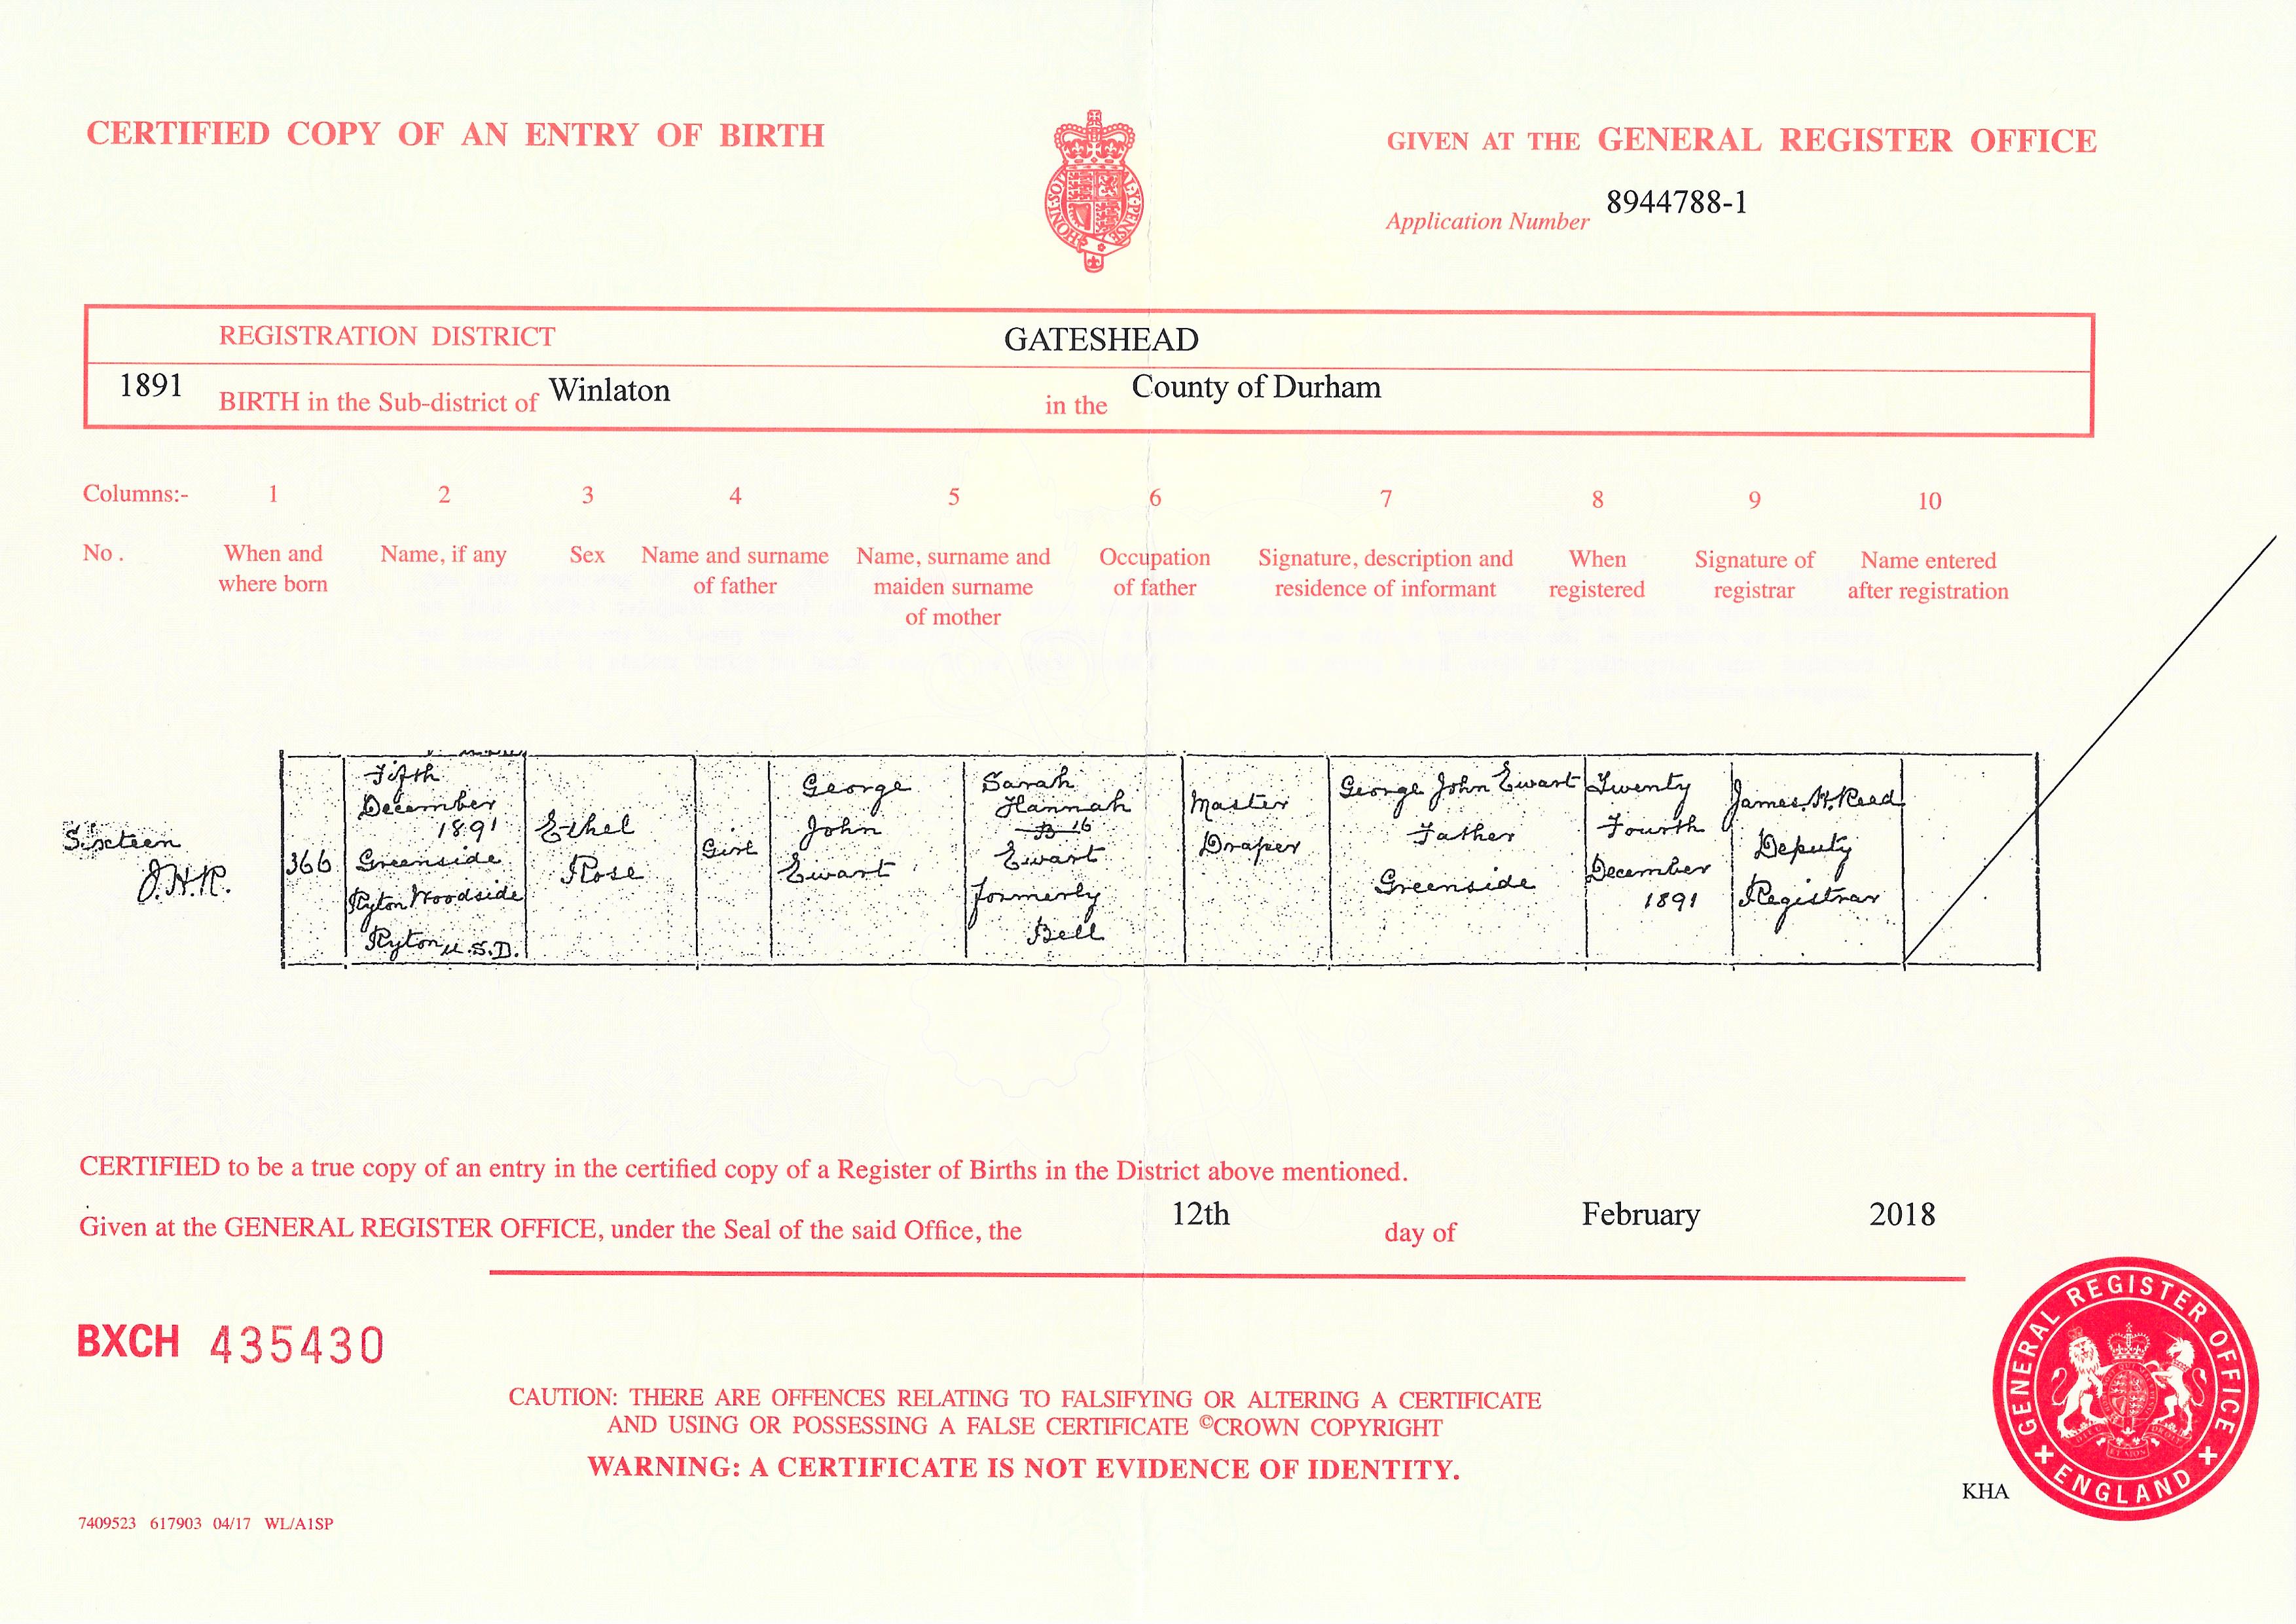 CERTIFIED COPY OF AN ENTRY OF BIRTH
GIVEN AT THE GENERAL REGISTER OFFICE
Application Number 8944788-1
REGISTRATION DISTRICT GATESHEAD
1891 BIRTH in the Sub-district of Winlaton in the County of Durham
Columns:- 1 2 3 4 5 6 7 8 9 10
No. When and where born
Name, if any
Sex
Name and surname of father
Name, surname and maiden surname of mother
Occupation of father
Signature, description and residence of informant
When registered
Signature of registrar
Name entered after registration
Sixteen
J.H.R.
366
Fifth
December
1891
Greenside
Ryton Woodside
Ryton U.S.D.
Ethel
Rose
Girl
George
John
Ewart
Sarah
Hannah
B 16
Ewart
formerly
Bell
Master
Draper
George John Ewart
Father
Greenside
Twenty
Fourth
December
1891
James.H.Read
Deputy
Registrar
CERTIFIED to be a true copy of an entry in the certified copy of a Register of Births in the District above mentioned.
Given at the GENERAL REGISTER OFFICE, under the Seal of the said Office, the 12th day of February 2018
BXCH 435430
CAUTION: THERE ARE OFFENCES RELATING TO FALSIFYING OR ALTERING A CERTIFICATE
AND USING OR POSSESSING A FALSE CERTIFICATE ©CROWN COPYRIGHT
WARNING: A CERTIFICATE IS NOT EVIDENCE OF IDENTITY.
7409523 617903 04/17 WL/A1SP
KHA
GENERAL REGISTER OFFICE
ENGLAND